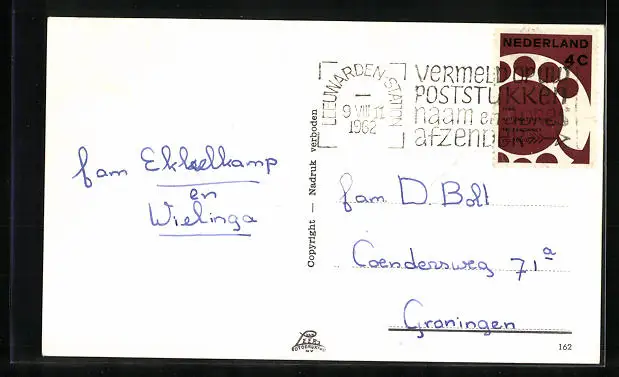 fam Ekkelkamp
en
Wielinga
Copyright — Nadruk verboden
LEEUWARDEN-STATION
1962
vermeld op uw
POSTSTUKKEN
naam en adres
afzender
NEDERLAND
4C
fam. D. Bolt
Coendersweg 71a
Groningen
162